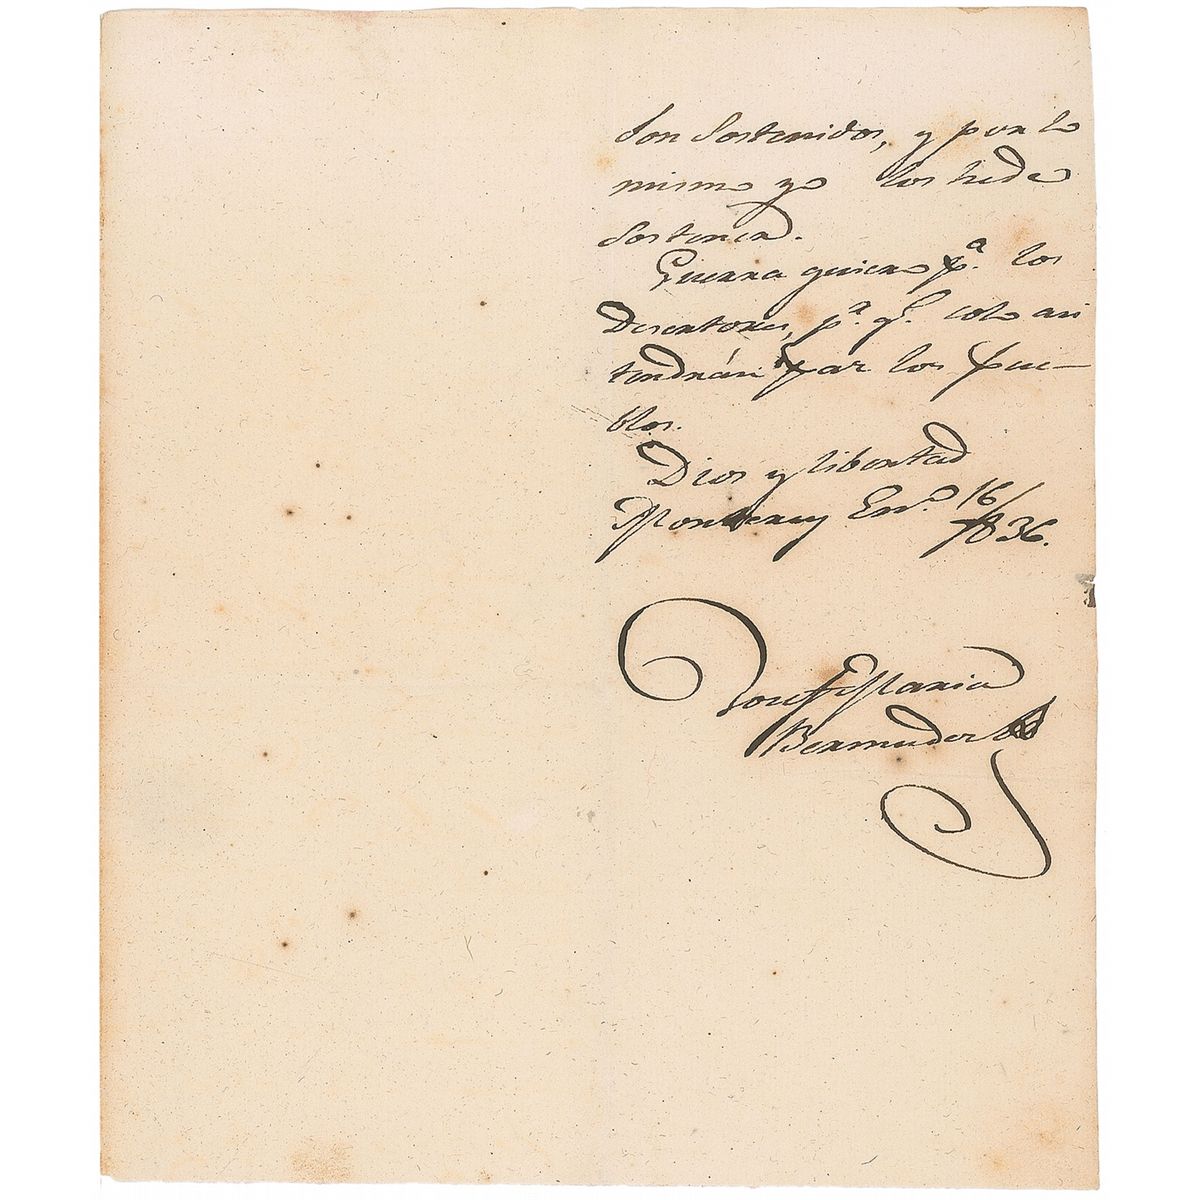 son sostenidos, y por lo
mismo yo los hede
sostener.
Guerra quiero pª. los
Desertores, pª. qe. solo asi
tendrán paz los pue-
blos.
Dios y libertad
Monterrey Enº. 16/
1836.
José Maria
Bermudez